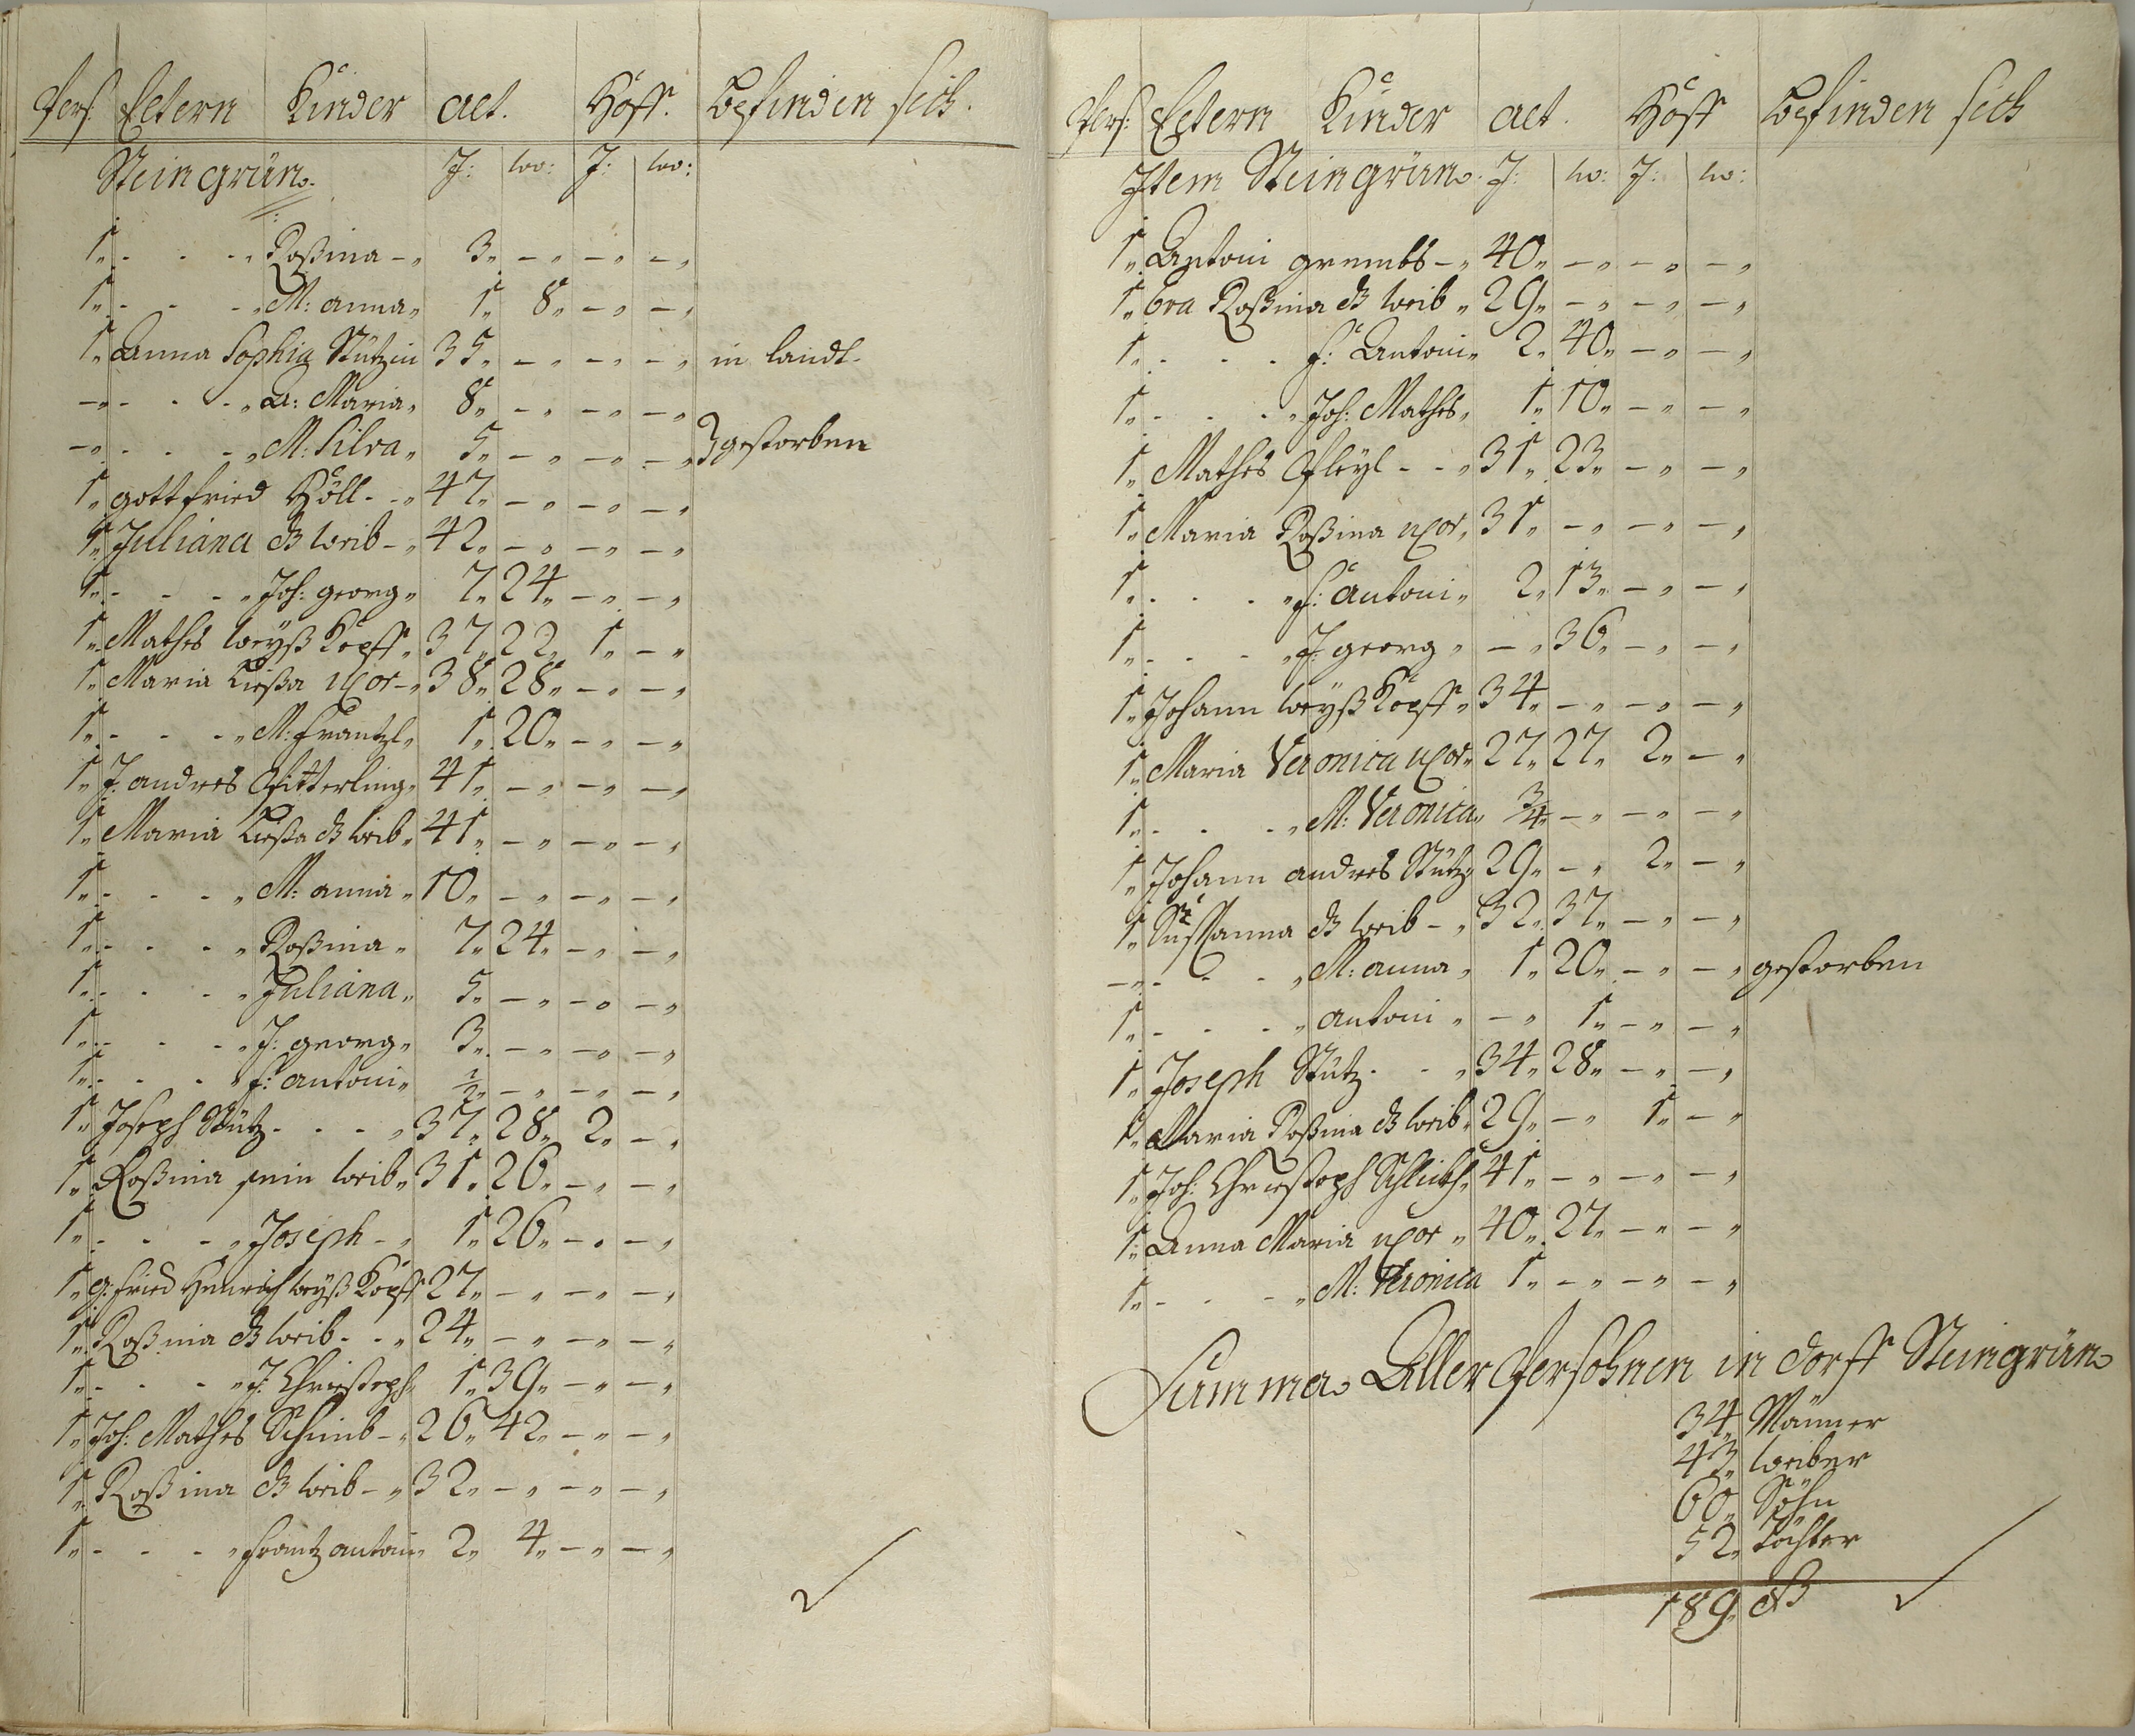 Pers: Eltern Kinder alt. Höff. befinden sich.
Steingrün. J: wo: J: wo:
1. - - - Roßina - 3. - - -
1. - - - M: anna 1. 8. - -
1. Anna Sophia Stützin 35. - - - in landt.
- - - - A: Maria 8. - - -
- - - - M: Silva 5. - - - } gestorben
1. gottfried Höll - - 47. - - -
1. Juliana ds weib - 42. - - -
1. - - - Joh: georg 7. 24. - -
1. Mathes weyß Kopff 37. 22. 1. -
1. Maria Liesa uxor - 38. 28. - -
1. - - - M: Frantzl 1. 20. - -
1. J: andres Pfitterling 41. - - -
1. Maria Liesa ds weib 41. - - -
1. - - - M: anna 10. - - -
1. - - - Roßina 7. 24. - -
1. - - - Juliana 5. - - -
1. - - - J: georg 3. - - -
1. - - - f: antoni ½ - - -
1. Joseph Stütz - - - 37. 28. 2. -
1. Roßina sein weib 31. 26. - -
1. - - - Joseph - 1. 26. - -
1. g: fried Henrich weyß Kopff 27. - - -
1. Roßina ds weib - - 24. - - -
1. - - - J: Christoph 1. 39. - -
1. Joh: Mathes - 26. 42. - -
1. Roßina ds weib - 32. - - -
1. - - - frantz antoni 2. 4. - -
Pers: Eltern Kinder alt. Höff befinden sich
Item Steingrün. J: wo: J: wo:
1. Antoni - 40. - - -
1. Eva Roßina ds weib 29. - - -
1. - - - f: Antoni 2. 40. - -
1. - - - Joh: Mathes 1. 10. - -
1. Mathes Pleyl - - 31. 23. - -
1. Maria Roßina uxor 31. - - -
1. - - - f: antoni 2. 13. - -
1. - - - J: georg - 36. - -
1. Johann weyß Kopff 34. - - -
1. Maria Veronica uxor 27. 27. 2. -
1. - - - M: Veronica ¾ - - -
1. Johann andres Stütz 29. - 2. -
1. Sussanna ds weib - 32. 37. - -
- - - - M: anna 1. 20. - - gestorben
1. - - - antoni - 1. - -
1. Joseph Stütz - - 34. 28. - -
1. Maria Roßina ds weib 29. - 1. -
1. Joh: Christoph 41. - - -
1. Anna Maria uxor 40. 27. - -
1. - - - M: Veronica 1. - - -
Summa Aller Persohnen in dorff Steingrün
34. Männer
43. weiber
60. Söhn
52. Töchter
189. ds